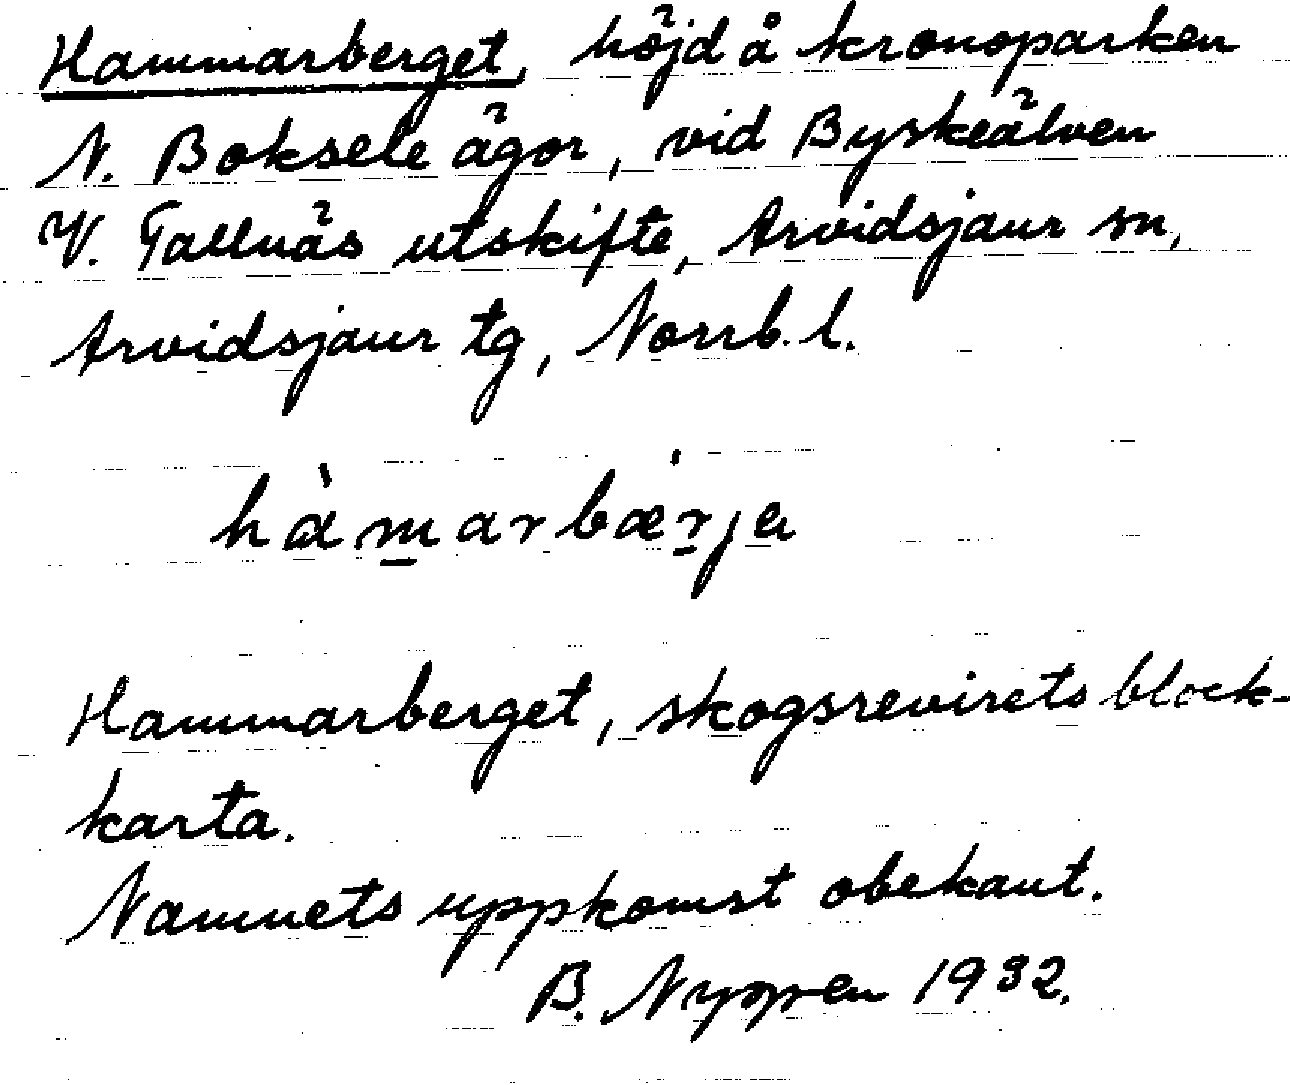 Hammarberget, höjd å kronoparken
N. Boksele ägor, vid Byskeälven
V. Tallnäs utskifte, Arvidsjaur sn,
Arvidsjaur tg, Norrb. l.
hàmarbærja
Hammarberget, skogsrevirets block-
karta.
Namnets uppkomst obekant.
B. 1932.